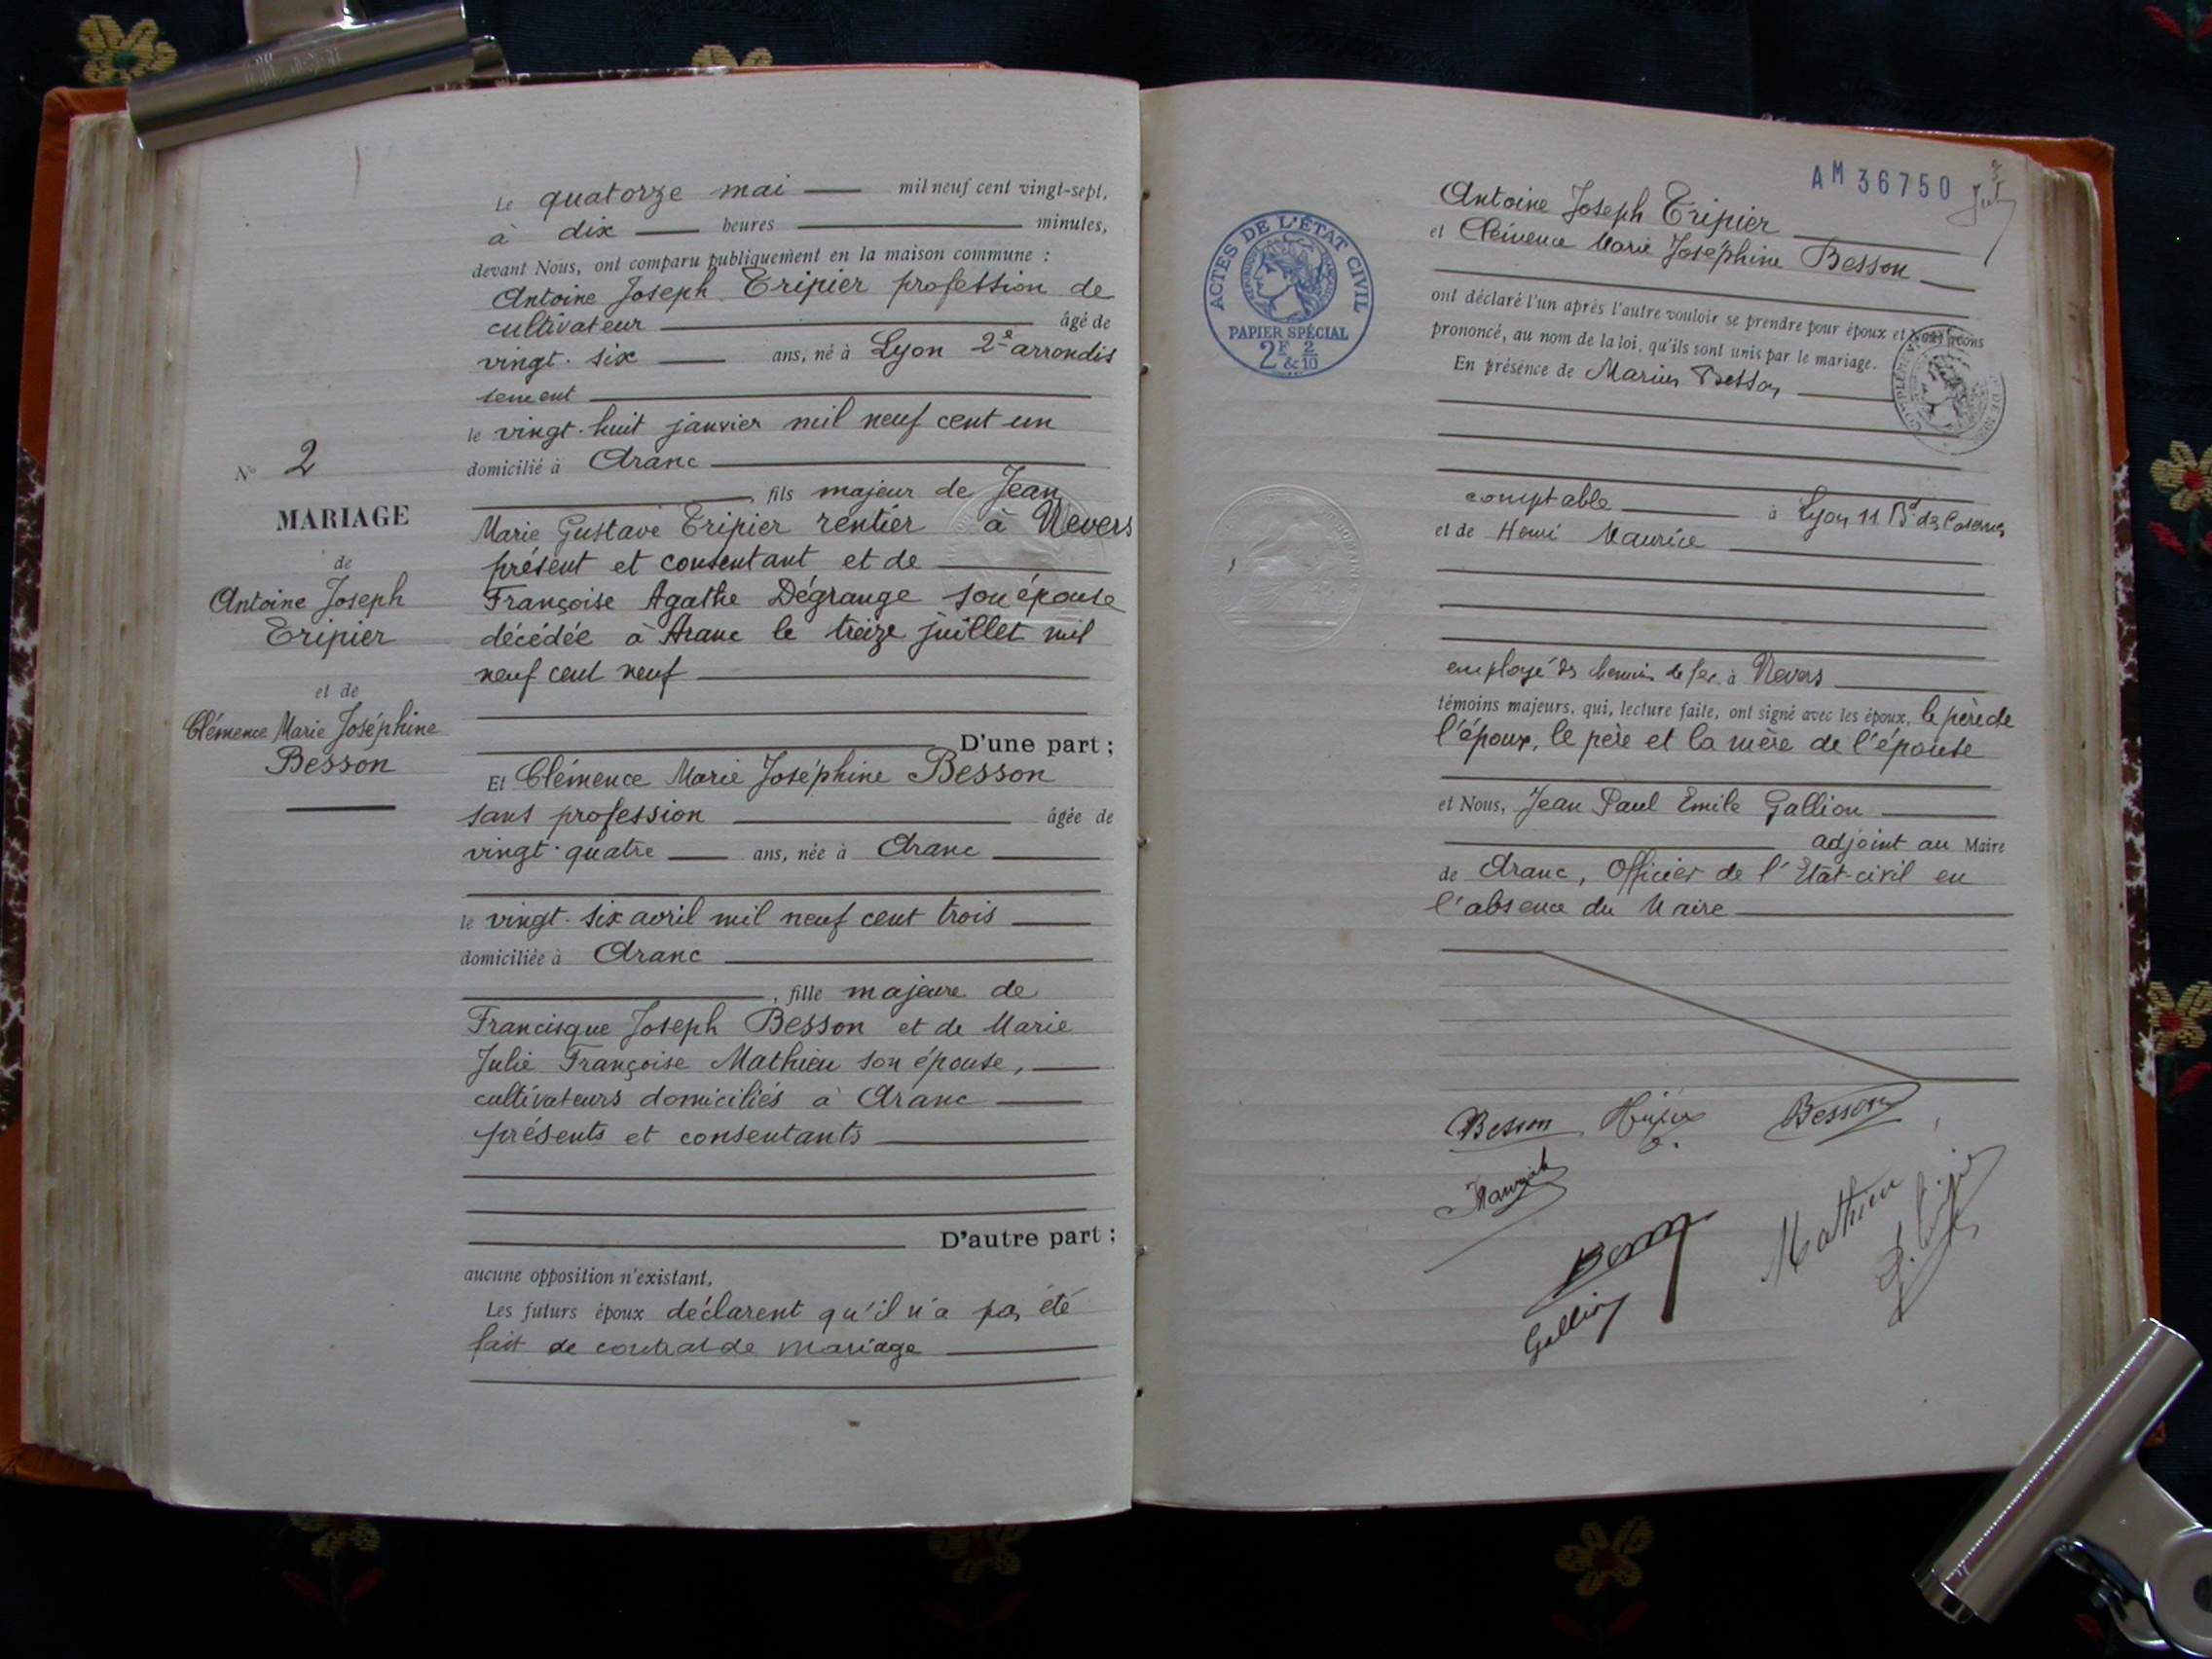 Le quatorze mai mil neuf cent vingt-sept,
à dix heures minutes,
devant Nous, ont comparu publiquement en la maison commune :
Antoine Joseph Tripier profession de
cultivateur âgé de
vingt-six ans, né à Lyon 2e arrondis
sement
le vingt-huit janvier mil neuf cent un
domicilié à Aranc
fils majeur de Jean
Marie Gustave Tripier rentier à Nevers
présent et consentant et de
Françoise Agathe Dégrange son épouse
décédée à Aranc le treize juillet mil
neuf cent neuf
D'une part ;
Et Clémence Marie Joséphine Besson
sans profession âgée de
vingt-quatre ans, née à Aranc
le vingt-six avril mil neuf cent trois
domiciliée à Aranc
, fille majeure de
Francisque Joseph Besson et de Marie
Julie Françoise Mathieu son épouse,
cultivateurs domiciliés à Aranc
présents et consentants
D'autre part ;
aucune opposition n'existant,
Les futurs époux déclarent qu'il n'a pas été
fait de contrat de mariage
N° 2
MARIAGE
de
Antoine Joseph
Tripier
et de
Clémence Marie Joséphine
Besson
AM 36750
ACTES DE L'ÉTAT CIVIL
PAPIER SPÉCIAL
2F & 2/10
Antoine Joseph Tripier
et Clémence Marie Joséphine Besson
ont déclaré l'un après l'autre vouloir se prendre pour époux et Nous avons
prononcé, au nom de la loi, qu'ils sont unis par le mariage.
En présence de Marius Besson
comptable à Lyon 11 Bd des Casernes
et de Henri Maurice
employé des chemins de fer à Nevers
témoins majeurs, qui, lecture faite, ont signé avec les époux, le père de
l'époux, le père et la mère de l'épouse
et Nous, Jean Paul Emile Gallion
adjoint au Maire
de Aranc, Officier de l'Etat-civil en
l'absence du Maire
Besson Besson
Besson
Mathieu
Gallion